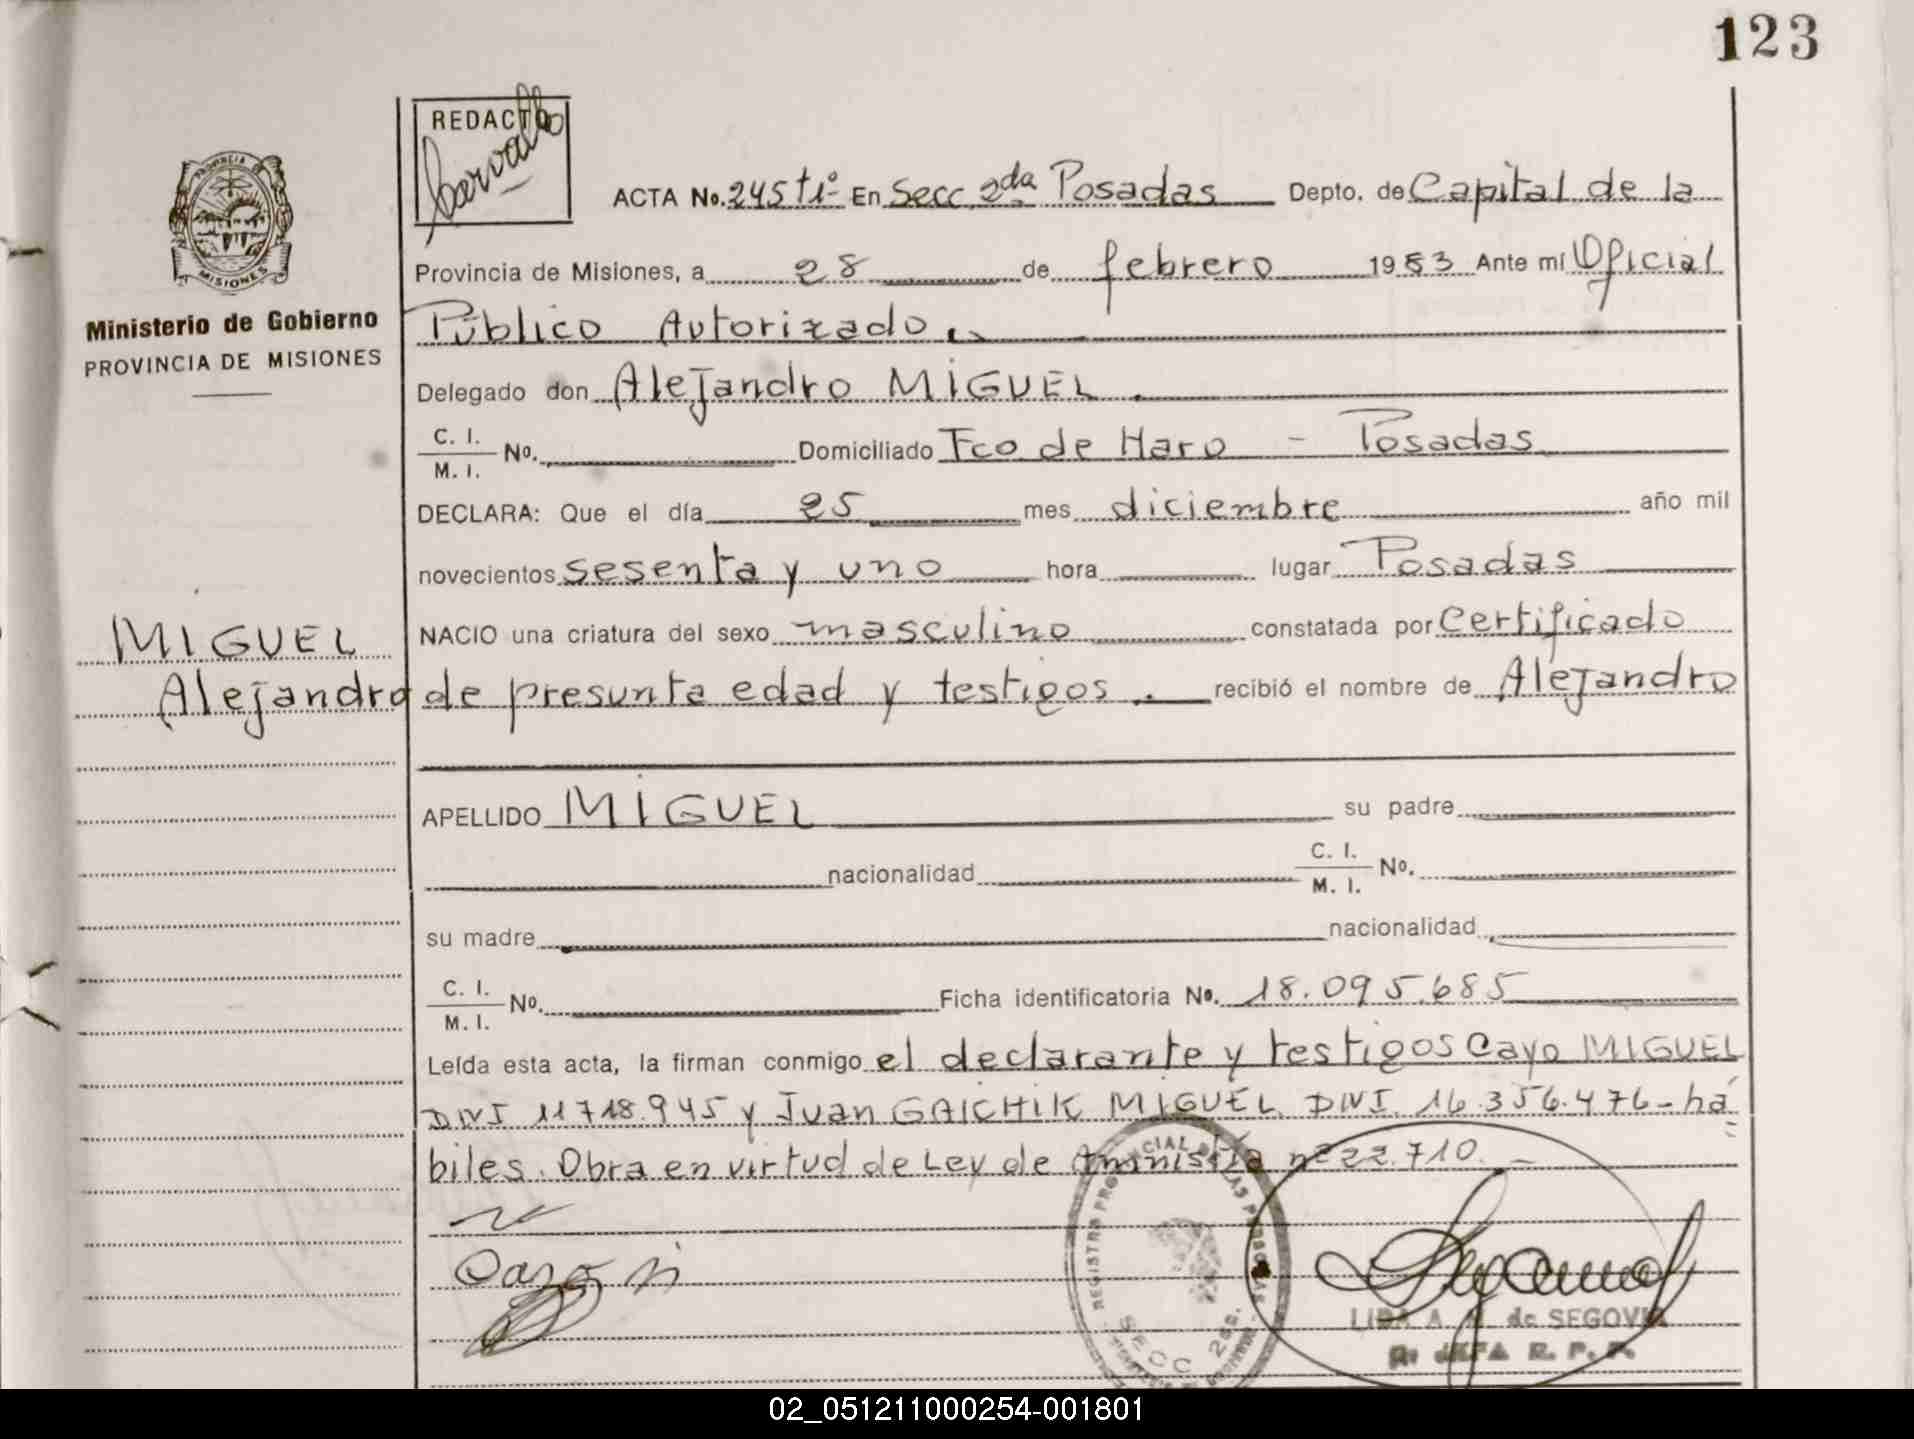 123
REDACTO
Servallo
PROVINCIA DE
MISIONES
Ministerio de Gobierno
PROVINCIA DE MISIONES
ACTA No. 245 tº1º En Secc. 2da Posadas Depto. de Capital de la
Provincia de Misiones, a 28 de febrero 1983 Ante mí Oficial
Público Autorizado.
Delegado don Alejandro MIGUEL.
C. I.
M. I. No. Domiciliado Fco de Haro - Posadas
DECLARA: Que el día 25 mes diciembre año mil
novecientos sesenta y uno hora lugar Posadas
NACIO una criatura del sexo masculino constatada por Certificado
MIGUEL
Alejandro
de presunta edad y testigos. recibió el nombre de Alejandro
APELLIDO MIGUEL su padre
nacionalidad C. I.
M. I. No.
su madre nacionalidad
C. I.
M. I. No. Ficha identificatoria No. 18.095.685
Leída esta acta, la firman conmigo el declarante y testigos Cayo MIGUEL
DNI 11718.945 y Juan GAICHIK MIGUEL DNI. 16.356.476 - há
biles. Obra en virtud de Ley de Amnistía nº 22.710. -
REGISTRO PROVINCIAL DE LAS PERSONAS
SECC 2da.
LIDA A. de SEGOVIA
JEFA R. P. P.
02_051211000254-001801